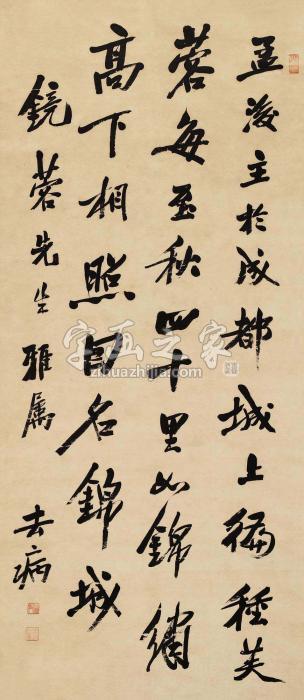 孟後主於成都城上徧種芙
蓉每至秋四十里如錦繡
高下相照因名錦城
鏡蓉先生雅属
去病
字画之家
zihuazhijia.com